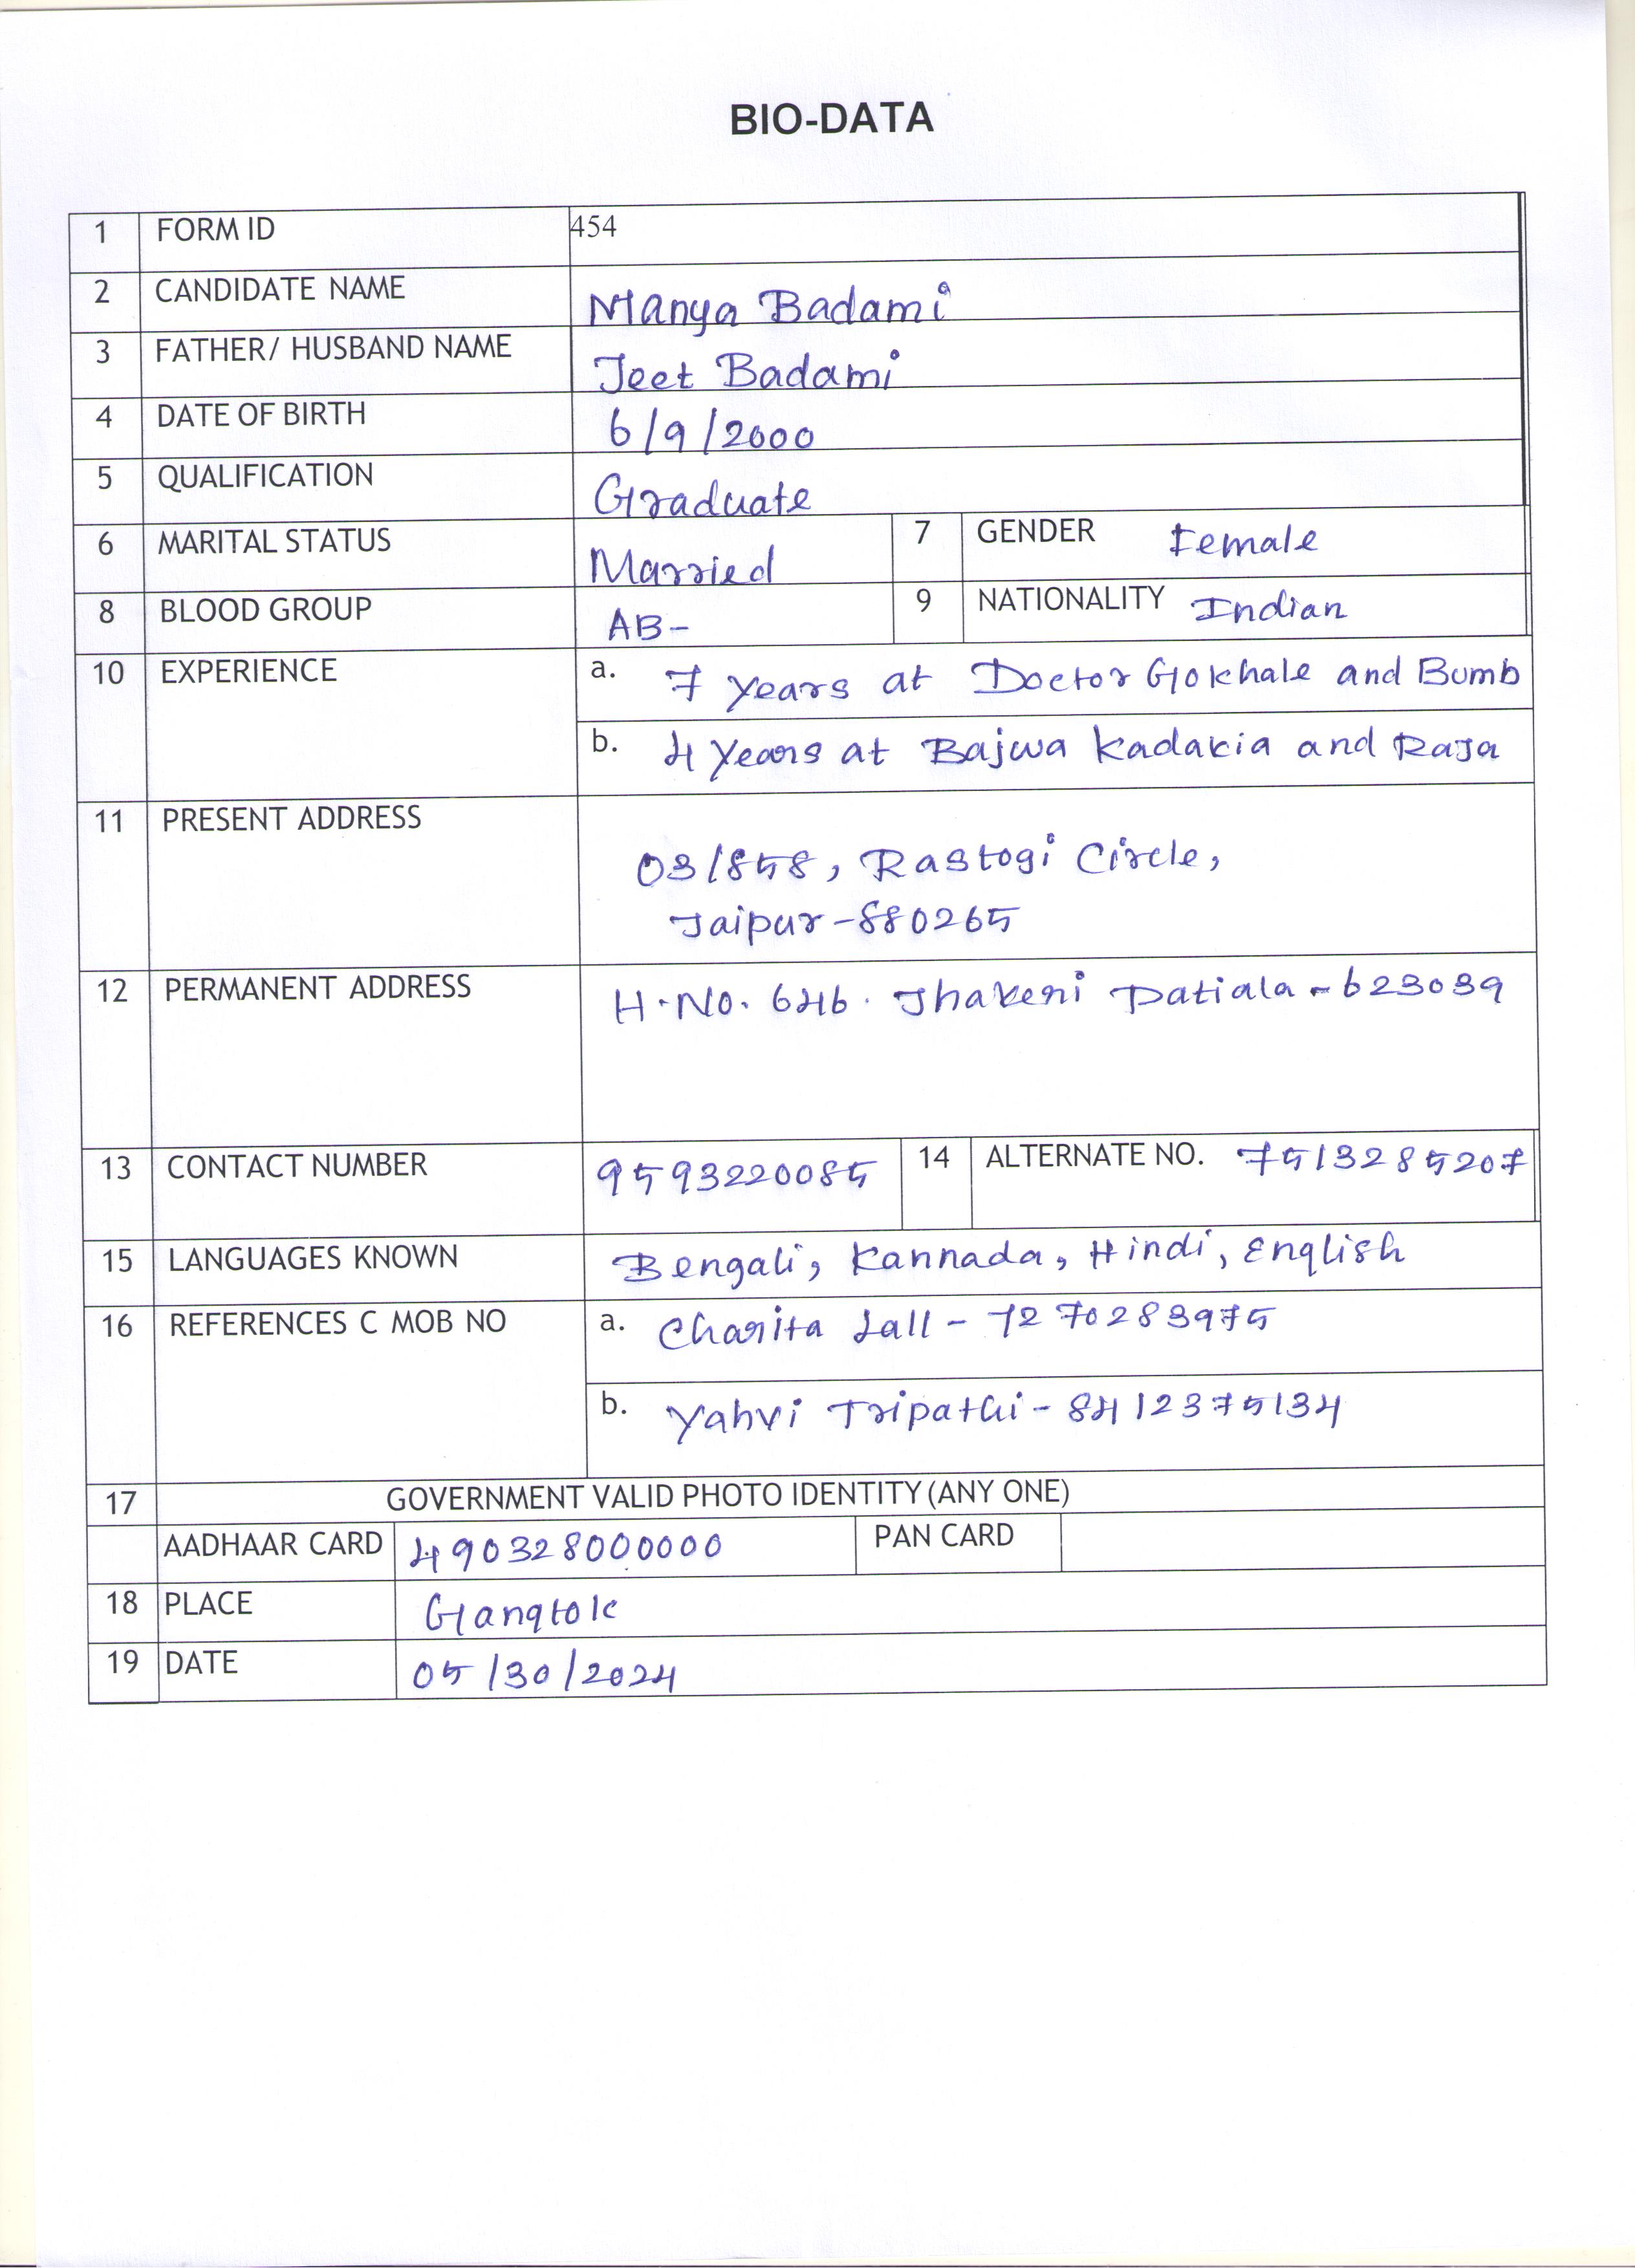 BIO-DATA
1 FORM ID 454
2 CANDIDATE NAME Manya Badami
3 FATHER/ HUSBAND NAME Jeet Badami
4 DATE OF BIRTH 6/9/2000
5 QUALIFICATION Graduate
6 MARITAL STATUS Married 7 GENDER Female
8 BLOOD GROUP AB- 9 NATIONALITY Indian
10 EXPERIENCE a. 7 years at Doctor Gokhale and Bumb
b. 4 Years at Bajwa Kadakia and Raja
11 PRESENT ADDRESS
03/858, Rastogi Circle,
Jaipur-880265
12 PERMANENT ADDRESS H.No. 646. Jhaveri Patiala-623039
13 CONTACT NUMBER 9593220085 14 ALTERNATE NO. 7513285207
15 LANGUAGES KNOWN Bengali, Kannada, Hindi, English
16 REFERENCES C MOB NO a. Charita Lall - 7270283975
b. Yahvi Tripathi - 8412375134
17 GOVERNMENT VALID PHOTO IDENTITY (ANY ONE)
AADHAAR CARD 490328000000 PAN CARD
18 PLACE Gangtok
19 DATE 05/30/2024